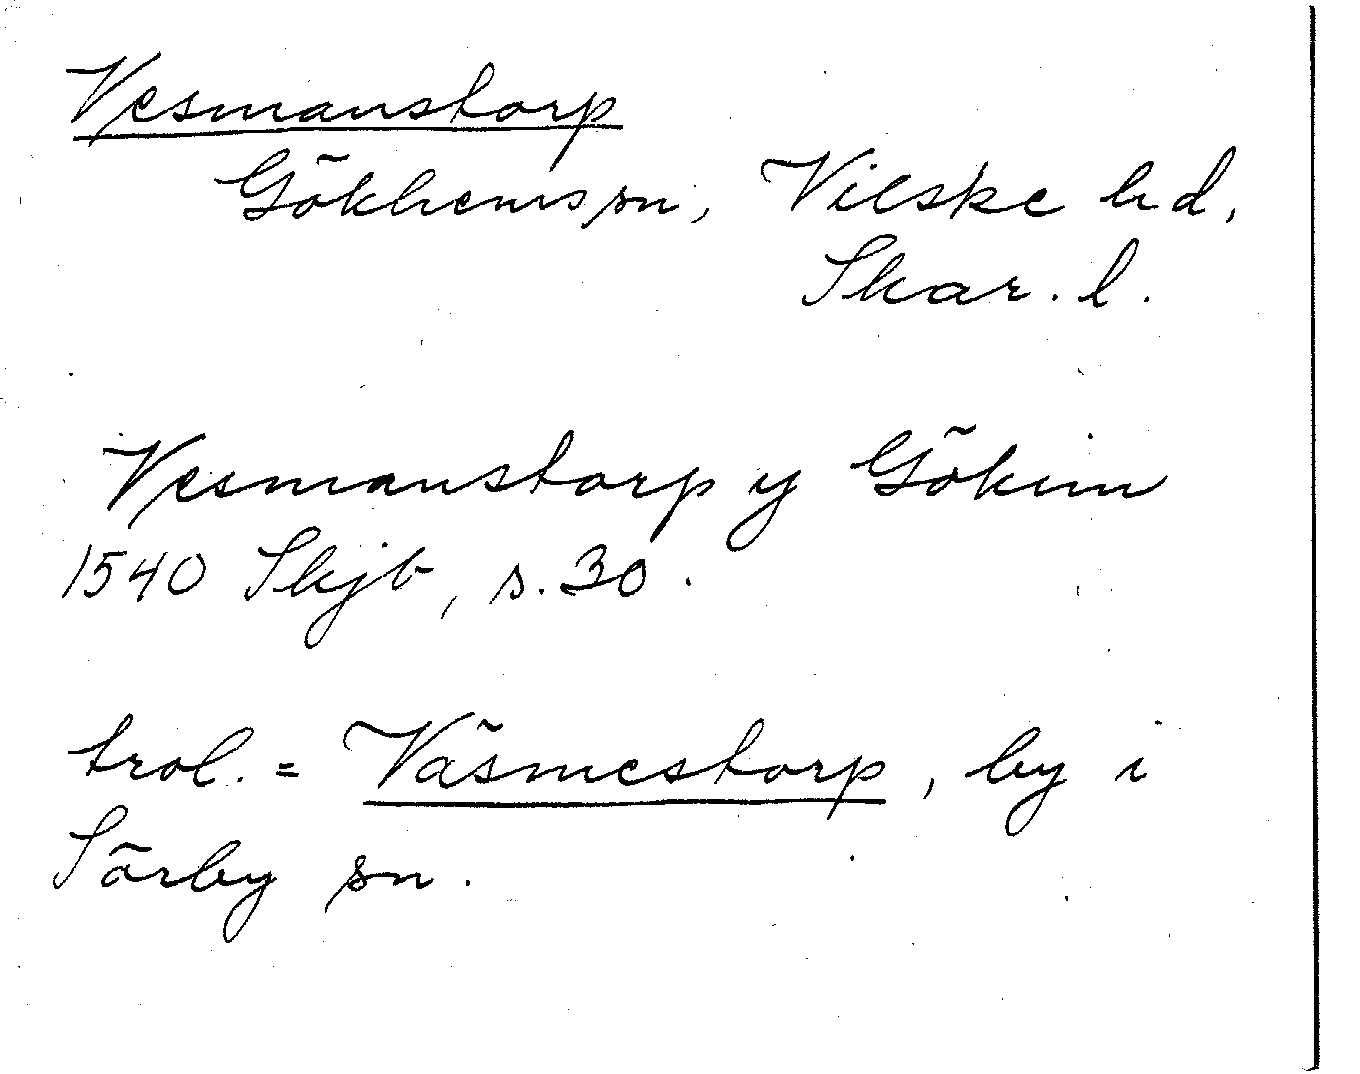 Vesmanstorp
Gökhems sn, Vilske hd,
Skar. l.
Vesmanstorp y Gökim
1540 Skjb, s. 30.
trol. = Väsmestorp, by i
Sörby sn.